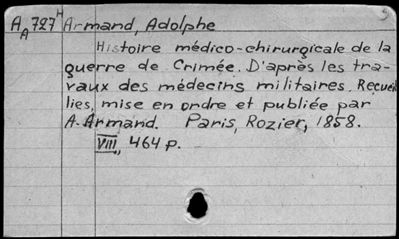 A A 727 H Armand, Adolphe
Histoire médico-chirurgicale de la
guerre de Crimée. D'après les tra-
vaux des médecins militaires. Recueil
lies, mise en ordre et publiée par
A. Armand. Paris, Rozier, 1858.
VIII, 464 p.